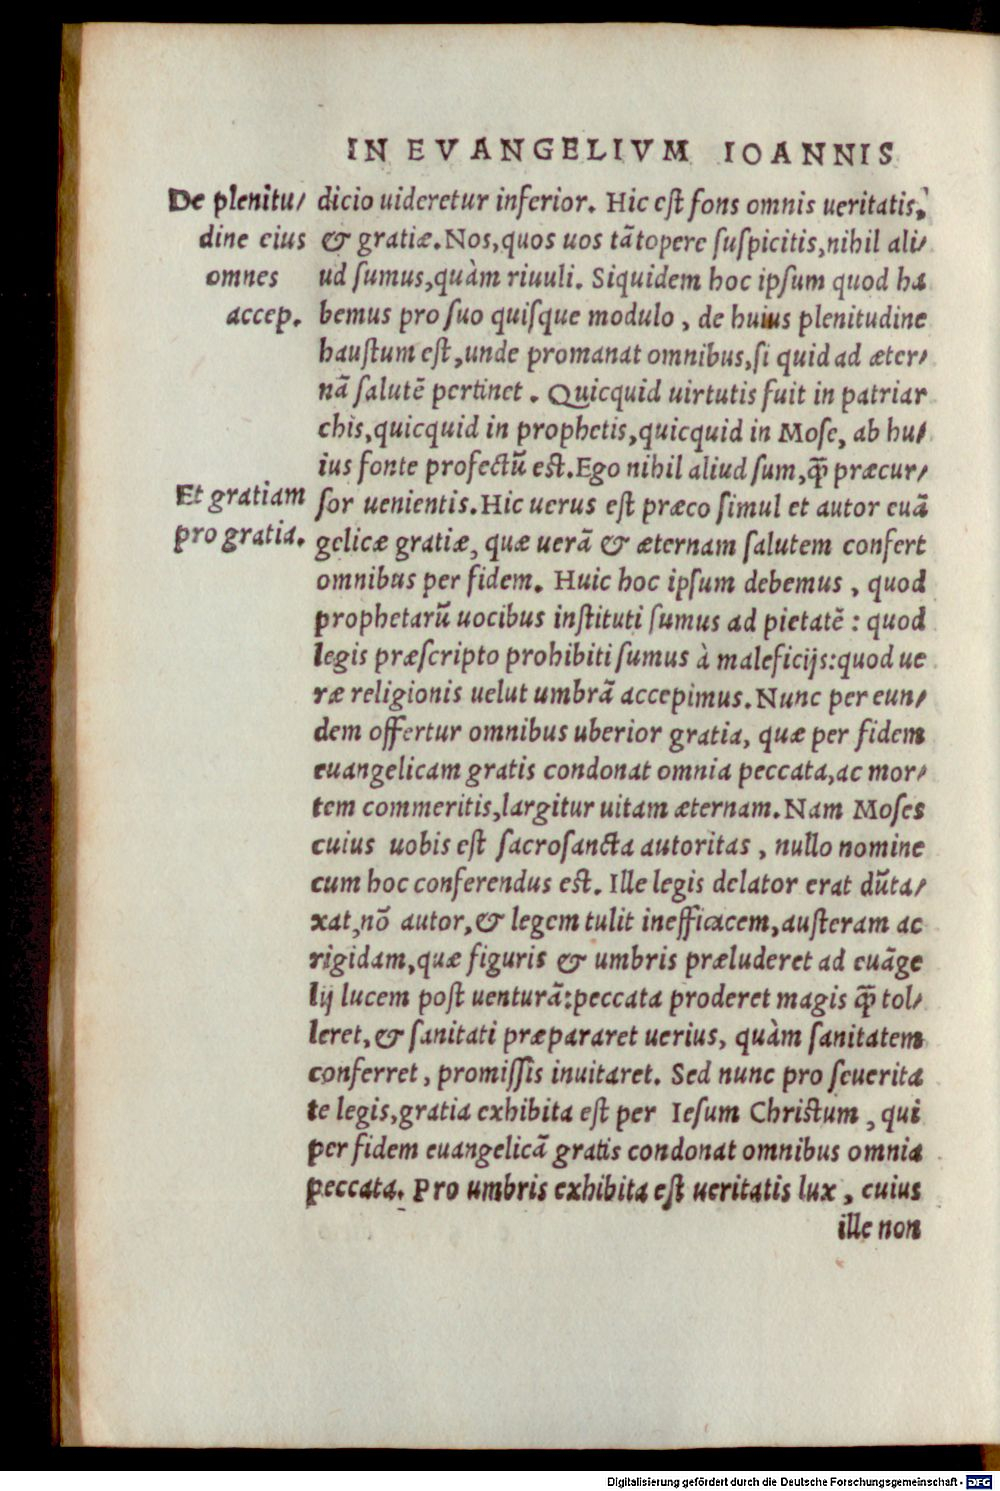 IN EVANGELIVM IOANNIS
De plenitu/
dine eius
omnes
accep.
dicio uideretur inferior. Hic est fons omnis ueritatis,
& gratiæ. Nos, quos uos tãtopere suspicitis, nihil ali/
ud sumus, quàm riuuli. Siquidem hoc ipsum quod ha
bemus pro suo quisque modulo, de huius plenitudine
haustum est, unde promanat omnibus, si quid ad æter/
nã salutẽ pertinet. Quicquid uirtutis fuit in patriar
chis, quicquid in prophetis, quicquid in Mose, ab hu/
ius fonte profectũ est. Ego nihil aliud sum, q̃ præcur/
Et gratiam
pro gratia.
sor uenientis. Hic uerus est præco simul et autor euã
gelicæ gratiæ, quæ uerã & æternam salutem confert
omnibus per fidem. Huic hoc ipsum debemus, quod
prophetarũ uocibus instituti sumus ad pietatẽ: quod
legis præscripto prohibiti sumus à maleficijs: quod ue
ræ religionis uelut umbrã accepimus. Nunc per eun/
dem offertur omnibus uberior gratia, quæ per fidem
euangelicam gratis condonat omnia peccata, ac mor/
tem commeritis, largitur uitam æternam. Nam Moses
cuius uobis est sacrosancta autoritas, nullo nomine
cum hoc conferendus est. Ille legis delator erat dũta/
xat, nõ autor, & legem tulit inefficacem, austeram ac
rigidam, quæ figuris & umbris præluderet ad euãge
lij lucem post uenturã: peccata proderet magis q̃ tol/
leret, & sanitati præpararet uerius, quàm sanitatem
conferret, promissis inuitaret. Sed nunc pro seuerita
te legis, gratia exhibita est per Iesum Christum, qui
per fidem euangelicã gratis condonat omnibus omnia
peccata. Pro umbris exhibita est ueritatis lux, cuius
ille non
Digitalisierung gefördert durch die Deutsche Forschungsgemeinschaft - DFG